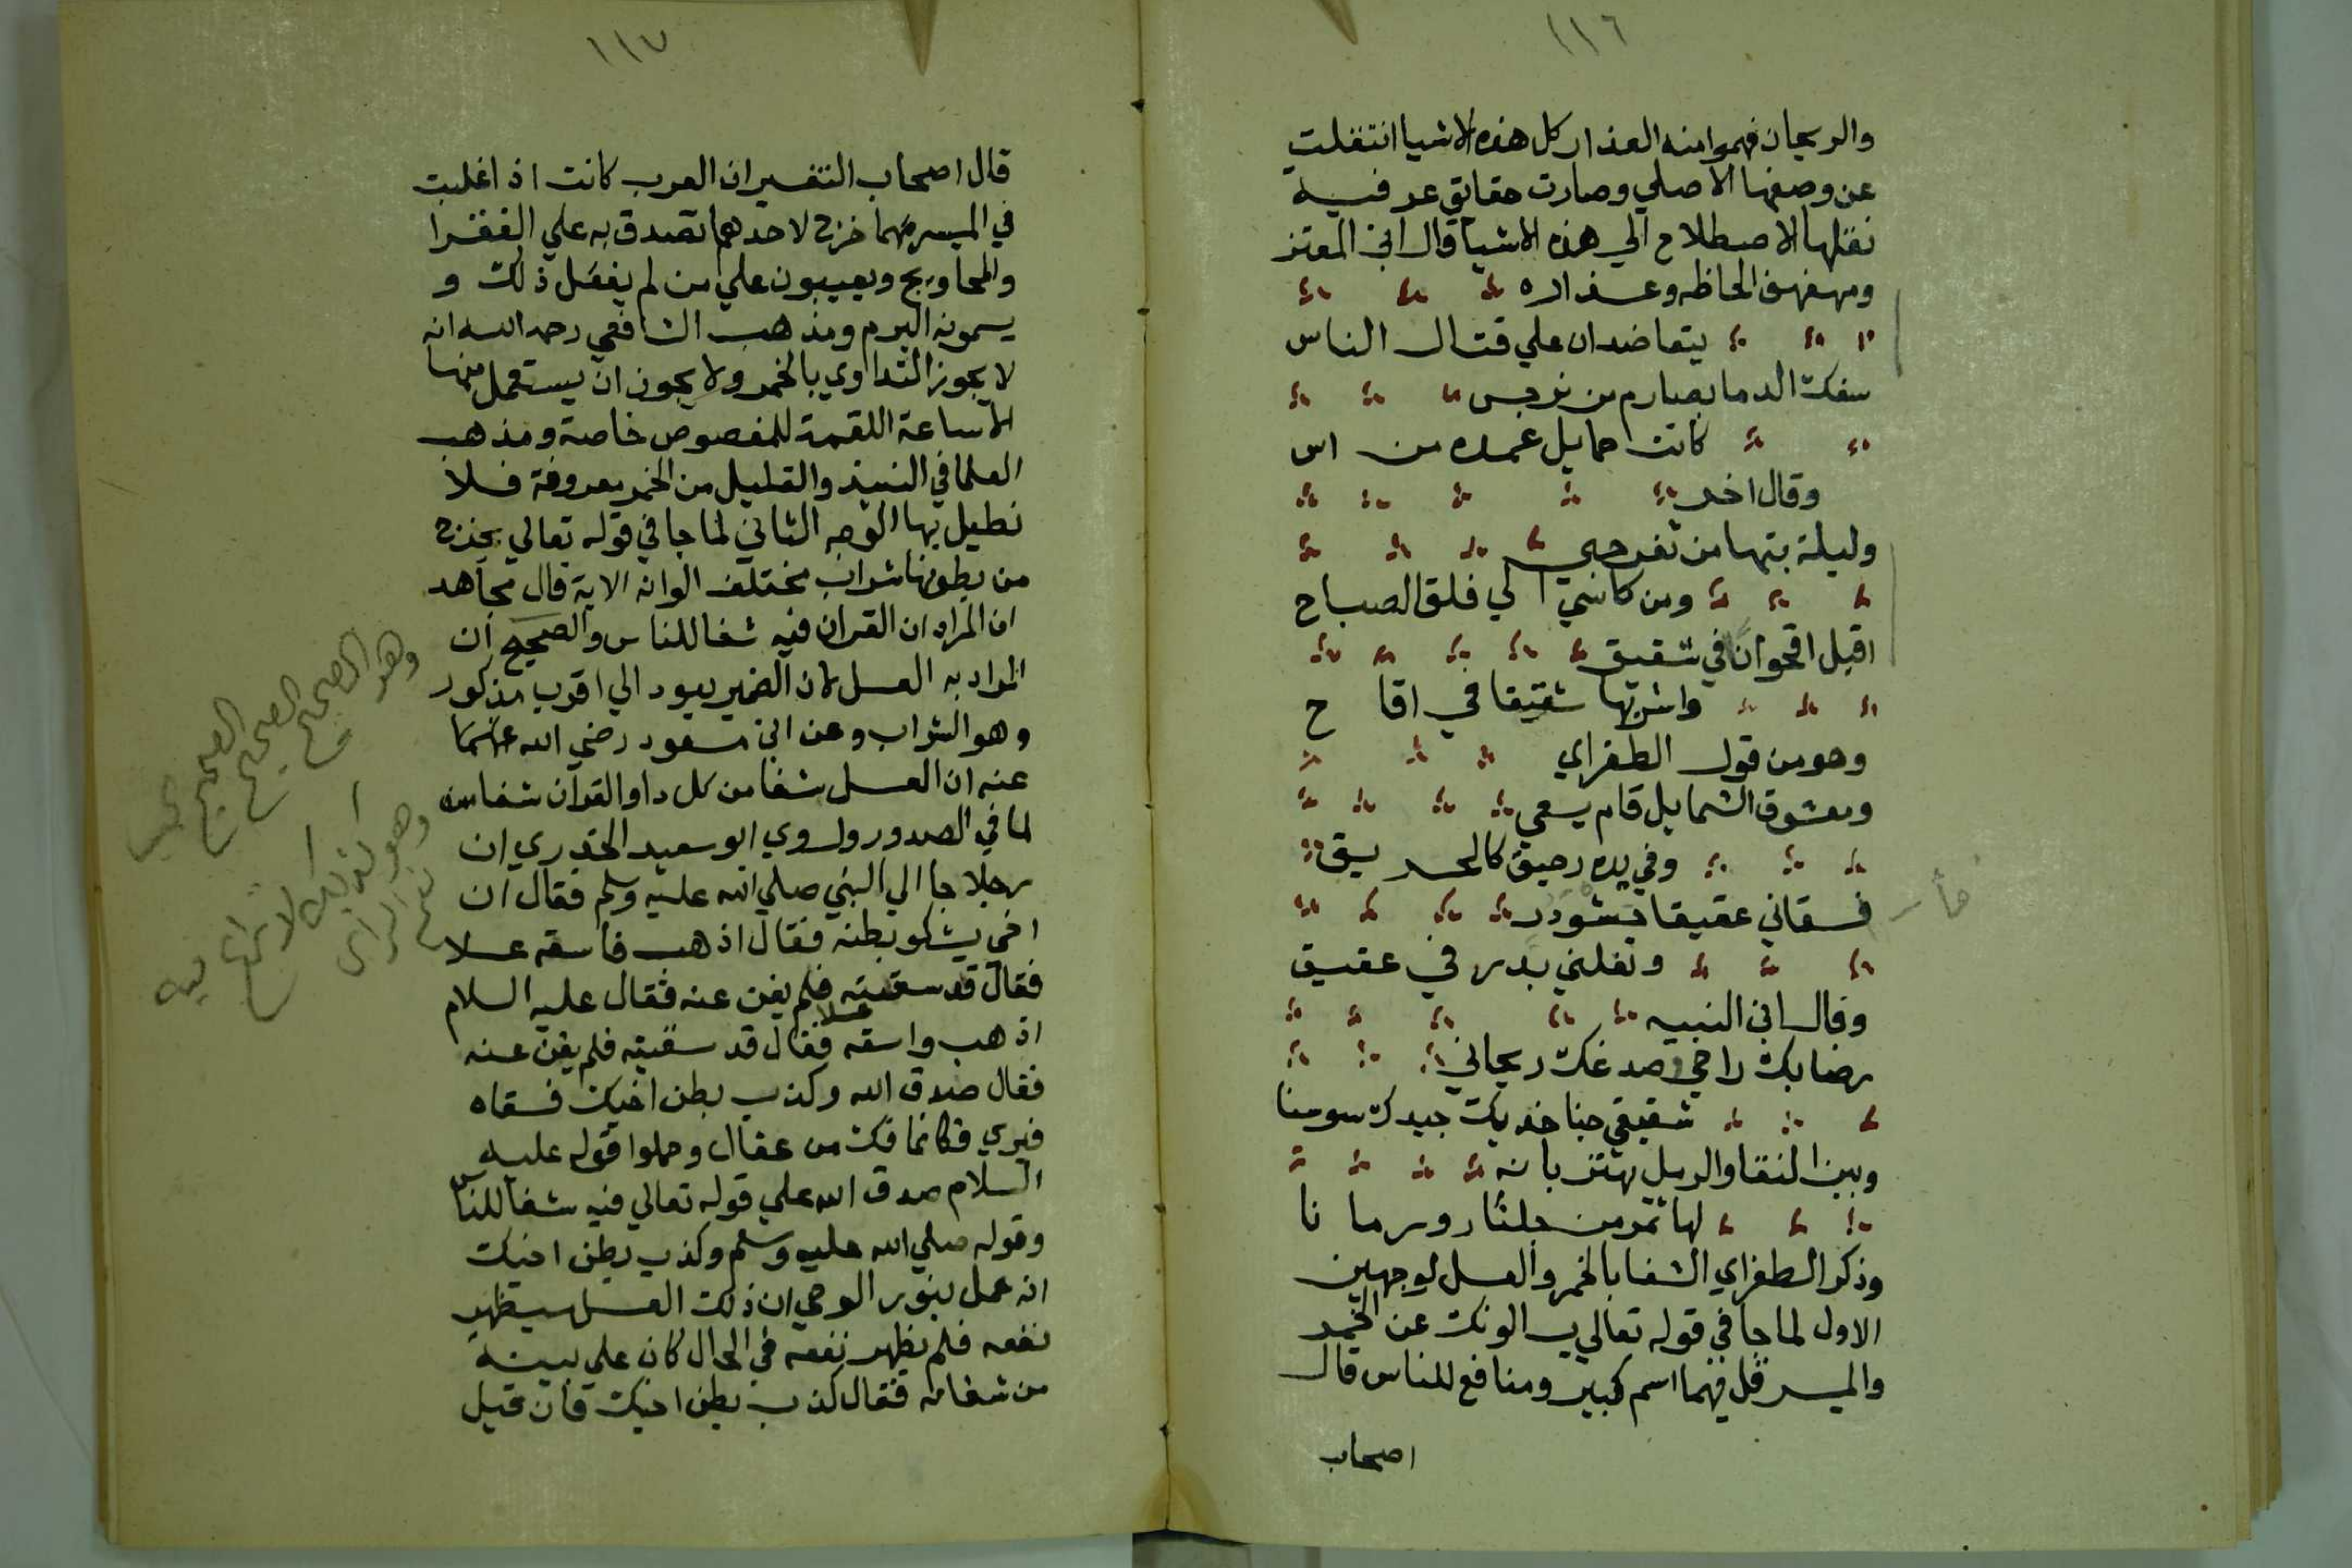 ١١٦
والريحان فهموا منه العذار كل هذه الاشيا انتقلت
عن وصفها الاصلي وصارت حقايق عرفيه
نقلها الاصطلاح الي هذه الاشيا قال ابن المعتز
ومهفهف الحاظه وعذاره
يتعاضدان علي قتال الناس
سفك الدما بصارم من نرجس
كانت حمايل غمده من اس
وقال اخر
وليلة بتها من ثغر حبي
ومن كاسي الي فلق الصباح
اقبل اقحوانا في شقيق
واشربها شقيقا في اقاح
وهو من قول الطغراي
ومعشوق الشمايل قام يسعي
وفي يده رحيق كالحريق
فسقاني عقيقا حشو در
ونقلني بدر في عقيق
وقال ابن النبيه
رضابك راحي وصدغك ريحاني
شقيقي جنا خديك جيدك سوسنا
وبين النقا والرمل يهتز بانه
لها ثمر من جلنار ورمانا
وذكر الطغراي الشفا بالخمر والعسل لوجهين
الاول لما جا في قوله تعالي يسالونك عن الخمر
والميسر قل فيهما اسم كبير ومنافع للناس قال
اصحاب
١١٧
قال اصحاب التفسير ان العرب كانت اذا غلبت
في الميسر مهما خرج لاحدهما تصدق به علي الفقرا
والمحاويج ويعيبون علي من لم يفعل ذلك و
يسمونه البرم ومذهب الشافعي رحمه الله انه
لا يجوز التداوي بالخمر ولا يجوز ان يستعمل منها
الاساعة اللقمة للمغصوص خاصة ومذهب
العلما في النبيذ والقليل من الخمر معروفة فلا
نطيل بها الوجه الثاني لما جا في قوله تعالي يخرج
من بطونها شراب مختلف الوانه الاية قال مجاهد
ان المراد ان القران فيه شفا للناس والصحيح ان
المراد به العسل لان الضمير يعود الي اقرب مذكور
وهو الشراب وعن ابن مسعود رضي الله عنهما
عنه ان العسل شفا من كل دا والقرآن شفا منه
لما في الصدور وروي ابو سعيد الخدري ان
رجلا جا الي النبي صلي الله عليه وسلم فقال ان
اخي يشكو بطنه فقال اذهب فاسقه عسلا
فقال قد سقيته فلم يغن عنه فقال عليه السلام
اذهب واسقه عسلا فقال قد سقيته فلم يغن عنه
فقال صدق الله وكذب بطن اخيك فسقاه
فبري فكانما فك من عقال وحملوا قوله عليه
السلام صدق الله علي قوله تعالي فيه شفا للناس
وقوله صلي الله عليه وسلم وكذب بطن اخيك
انه عمل بنور الوحي ان ذلك العسل سيظهر
نفعه فلم يظهر نفعه في الحال كان علي بينة
من شفايه فقال كذب بطن اخيك فان قيل
وهو الصحيح
الصحيح